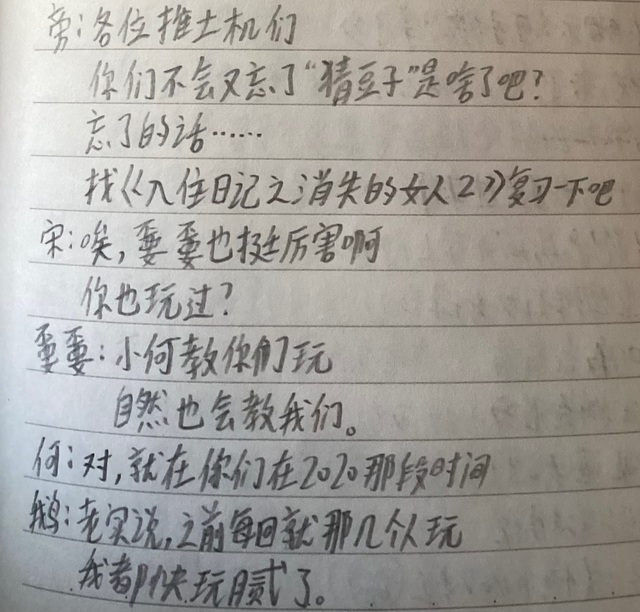 旁:各位推土机们
你们不会又忘了“猜豆子”是啥了吧?
忘了的话……
找《入住日记之消失的女人2》复习一下吧
宋:唉,嘦嘦也挺厉害啊
你也玩过?
嘦嘦:小何教你们玩
自然也会教我们。
何:对,就在你们在2020那段时间
鹅:老实说,之前每回就那几个人玩
我都快玩腻了。